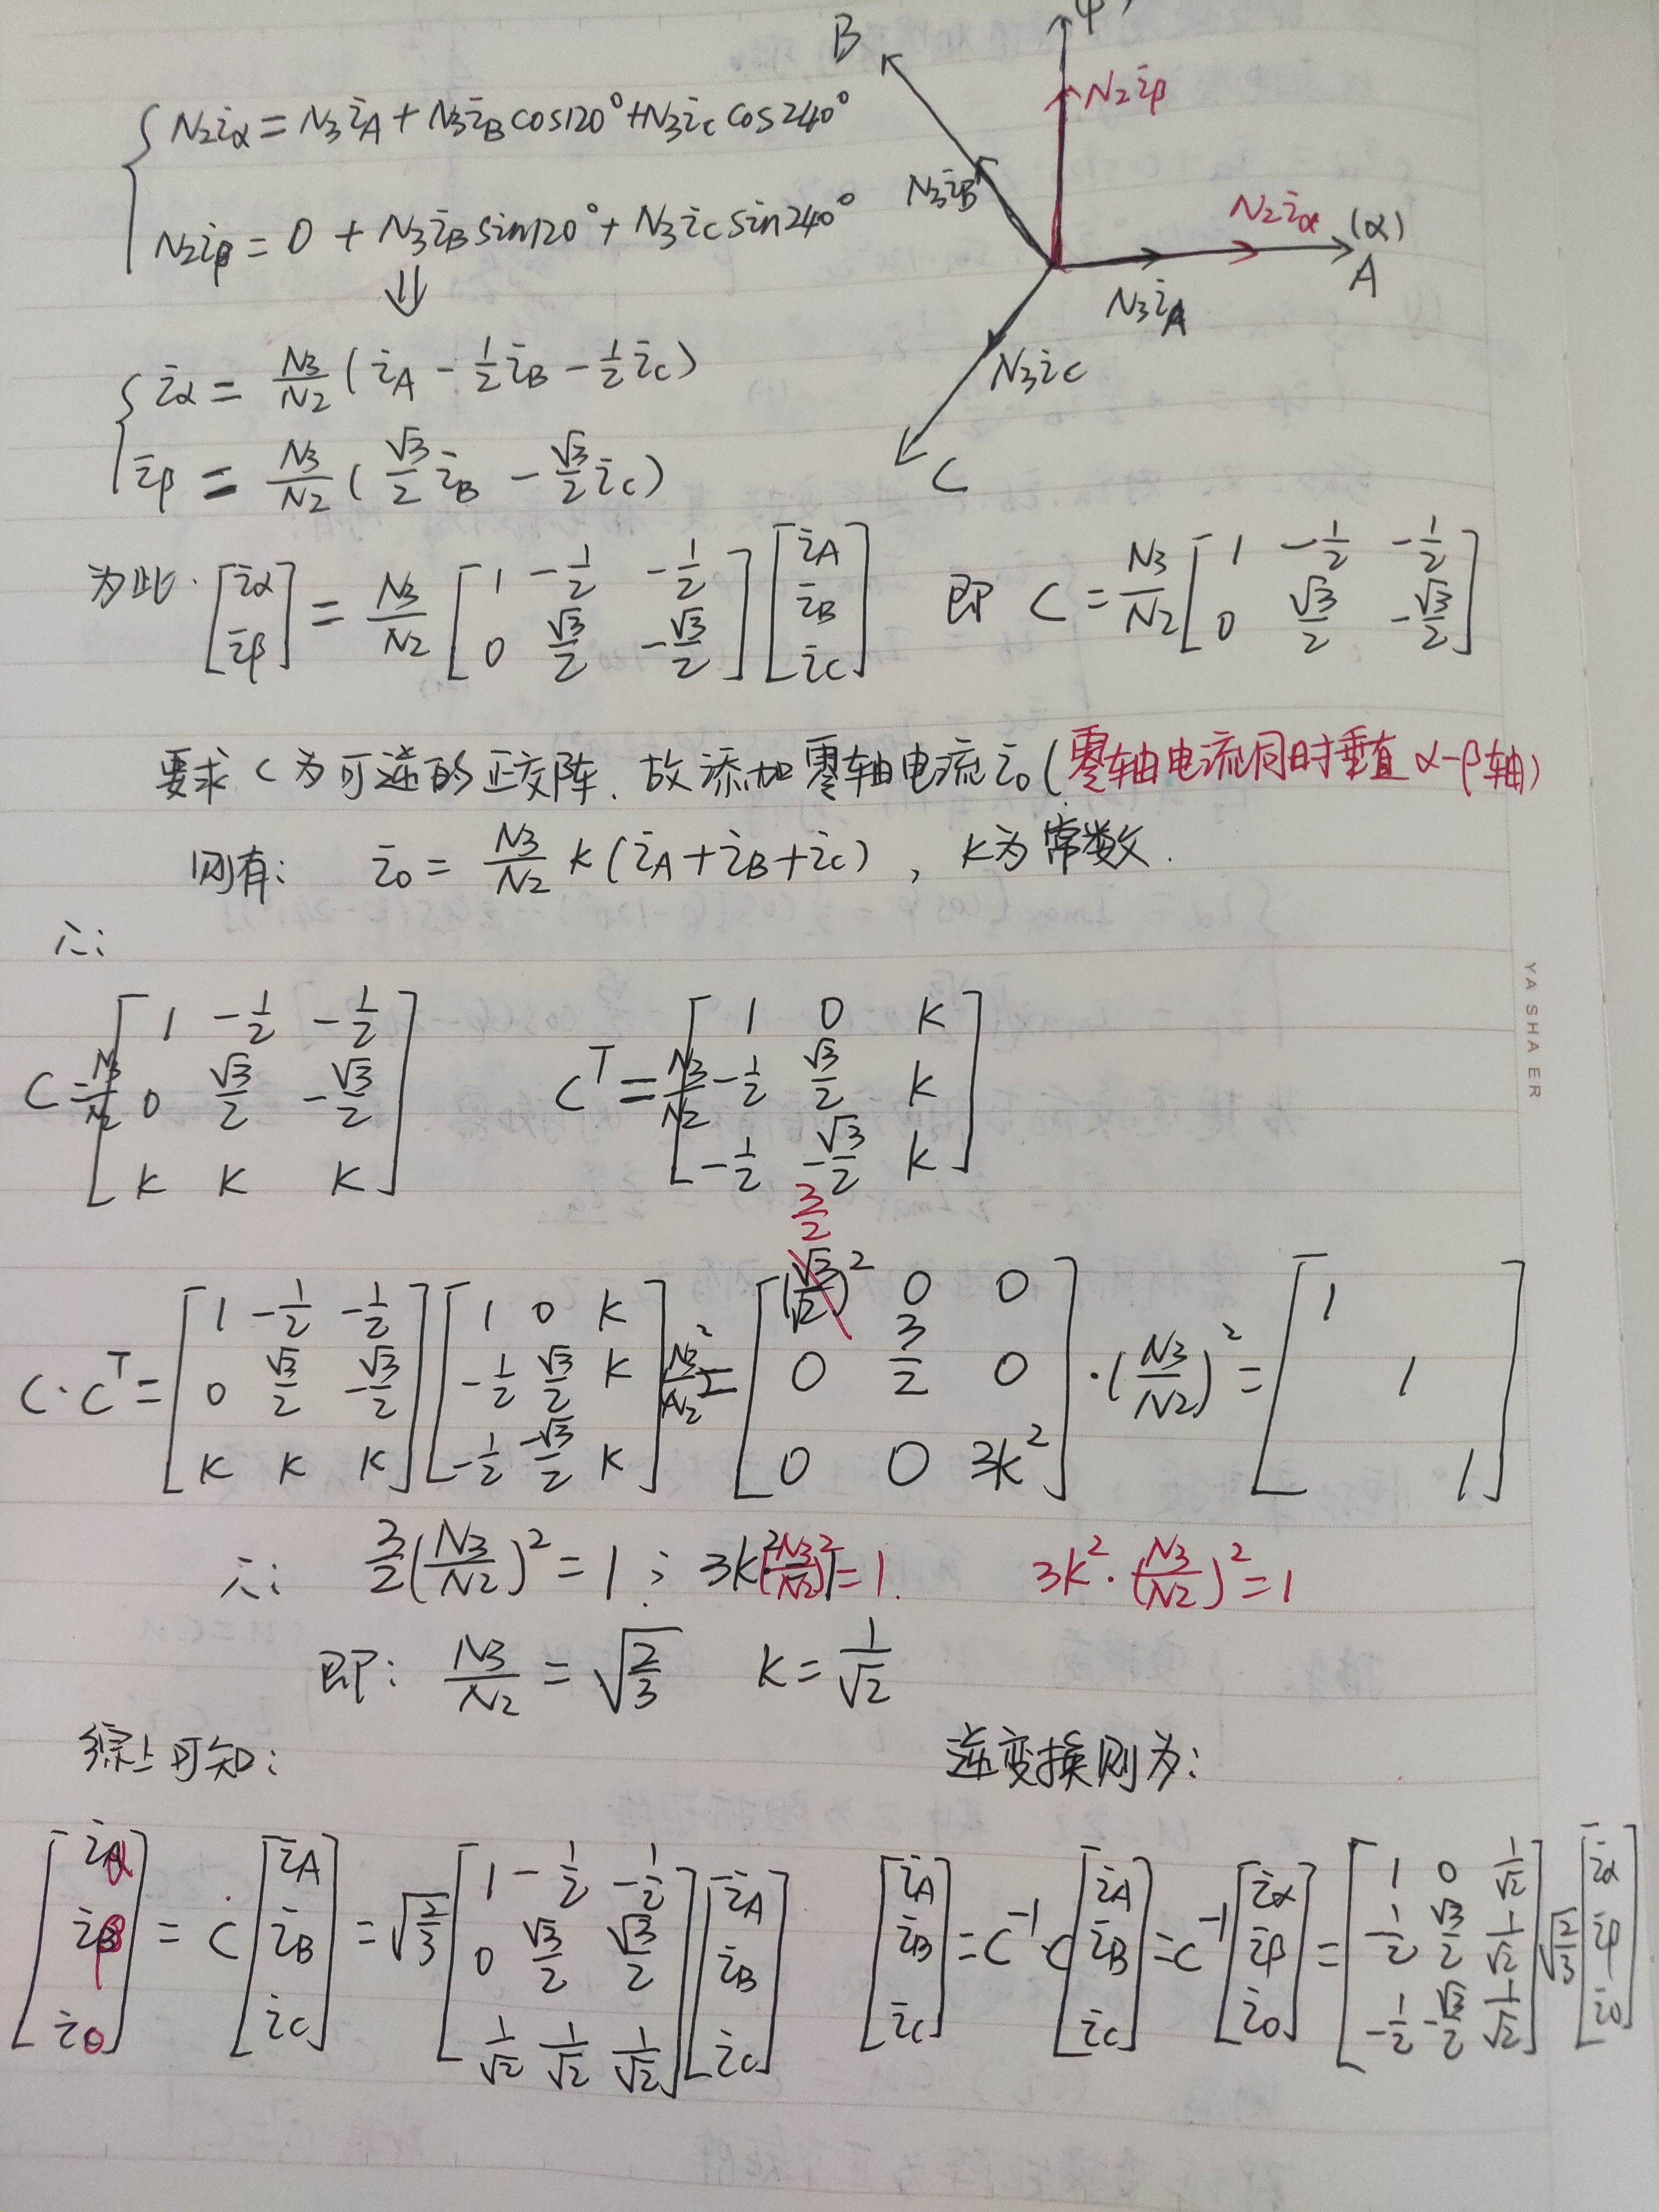 B β)
{ N₂i_α = N₃i_A + N₃i_B cos120° + N₃i_C cos240°
N₂i_β = 0 + N₃i_B sin120° + N₃i_C sin240°
⇓
N₂i_β
N₃i_B
N₂i_α (α)
A
N₃i_A
N₃i_C
C
{ i_α = N₃/N₂ ( i_A - 1/2 i_B - 1/2 i_C )
i_β = N₃/N₂ ( √3/2 i_B - √3/2 i_C )
为此. [i_α; i_β] = N₃/N₂ [1 -1/2 -1/2; 0 √3/2 -√3/2] [i_A; i_B; i_C] 即 C = N₃/N₂ [1 -1/2 -1/2; 0 √3/2 -√3/2]
要求 C 为可逆的正交阵. 故添加零轴电流 i₀ (零轴电流同时垂直 α-β轴)
则有: i₀ = N₃/N₂ K (i_A + i_B + i_C) , K为常数.
∴:
C = N₃/N₂ [1 -1/2 -1/2; 0 √3/2 -√3/2; K K K] C^T = N₃/N₂ [1 0 K; -1/2 √3/2 K; -1/2 -√3/2 K]
3/2
C·C^T = [1 -1/2 -1/2; 0 √3/2 -√3/2; K K K] [1 0 K; -1/2 √3/2 K; -1/2 -√3/2 K] N₃²/N₂² = [(√3/√2)² 0 0; 0 3/2 0; 0 0 3K²] · (N₃/N₂)² = [1; 1; 1]
∴: 3/2 (N₃/N₂)² = 1 ; 3K²(N₃/N₂)² = 1. 3K²·(N₃/N₂)² = 1
即: N₃/N₂ = √(2/3) K = 1/√2
综上可知: 逆变换则为:
[i_α; i_β; i₀] = C [i_A; i_B; i_C] = √(2/3) [1 -1/2 -1/2; 0 √3/2 √3/2; 1/√2 1/√2 1/√2] [i_A; i_B; i_C] [i_A; i_B; i_C] = C⁻¹·C [i_A; i_B; i_C] = C⁻¹ [i_α; i_β; i₀] = [1 0 1/√2; -1/2 √3/2 1/√2; -1/2 -√3/2 1/√2] √(2/3) [i_α; i_β; i₀]
YA SHA ER